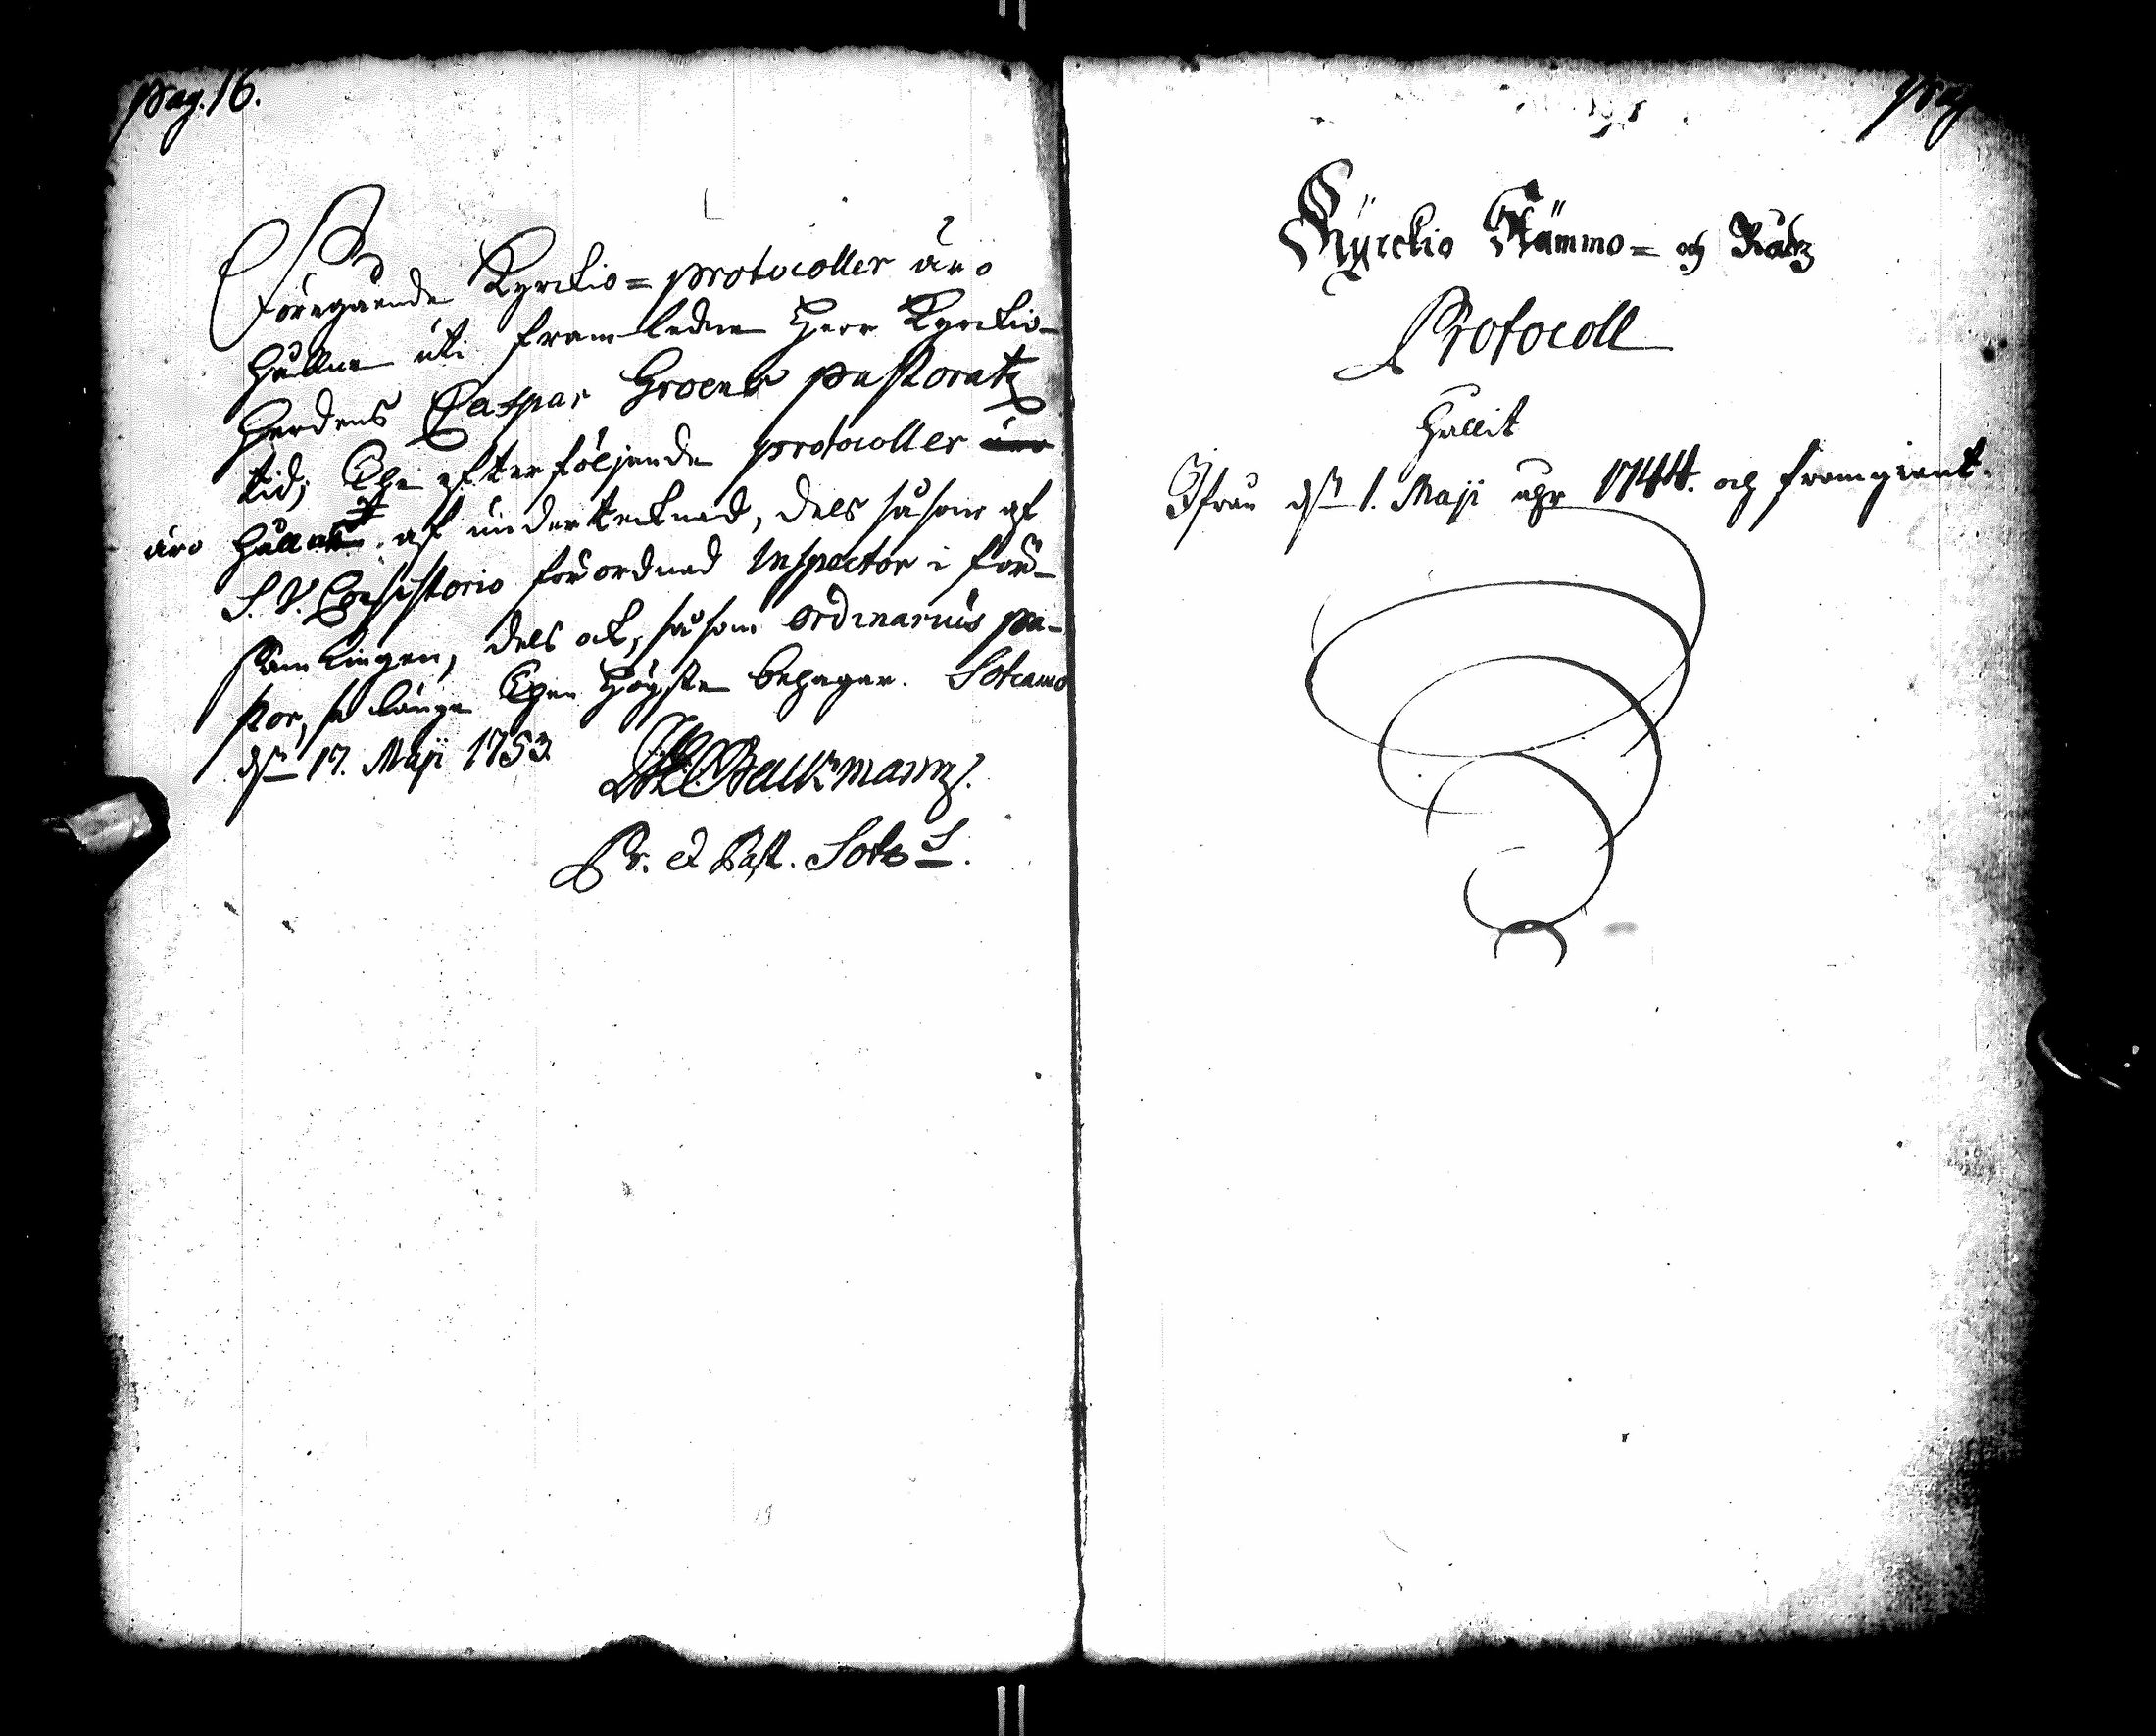 pag. 16.
Föregående Kyrckio=protocoller äro
hållne uti framledne Herr Kyrckio-
Herdens Caspar Groens pastoratz
tid; Men efterföljande protocoller
äro hållne af undertecknad, dels såsom af
S. V. Consistorio förordnad Inspector i för-
samlingen, dels ock, såsom ordinarius pa-
stor, så länge then Högste behagar. Sotcamo
den 17. Maji 1753.
Backmann.
Pr. et Past. Sotc.
pag
Kyrckio Stämmo= och Råds
Protocoll
Hållit
Ifrån den 1. Maji åhr 1744. och framgient.